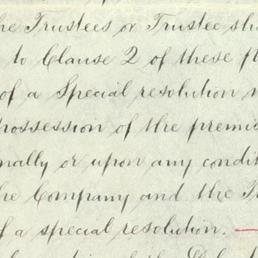 he Trustees or Trustee sh
to Clause 2 of these
of a Special resolution
possession of the premis
nally or upon any condit
he Company and the T
f a special resolution.